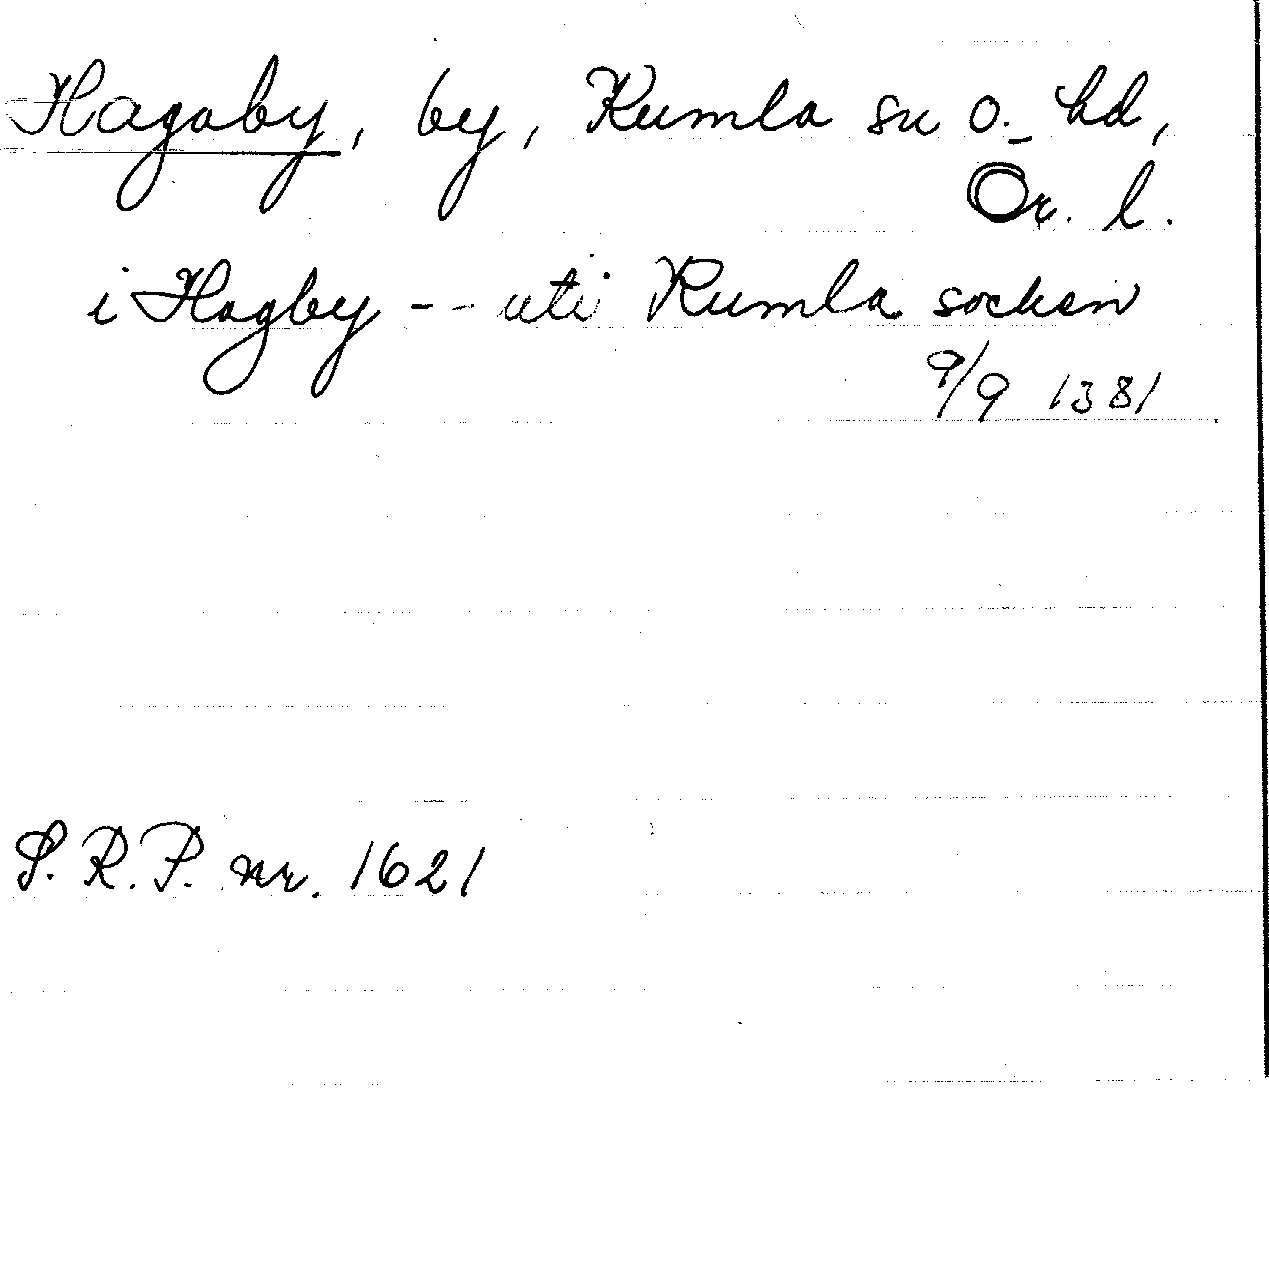 Hagaby, by, Kumla sn o. hd,
Ör. l.
i Hagby - - uti Kumla socken
9/9 1381
S.R.P. nr. 1621